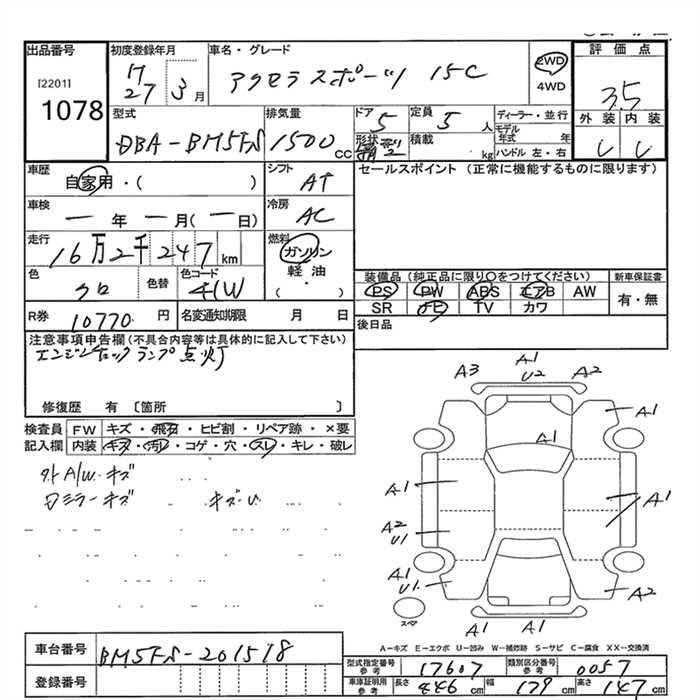 出品番号
[2201]
1078
初度登録年月
H 27 3 月
車名・グレード
アクセラスポーツ 15C
2WD
4WD
評価点
3.5
外装 内装
型式
DBA-BM5FS
排気量
1500 cc
ドア
5
形状
定員
5 人
積載
kg
ディーラー・並行
モデル年式 年
ハンドル 左・右
車歴
自家用・( )
シフト
AT
車検
ー 年 ー 月 (ー 日)
冷房
AC
走行
16万2千247 km
燃料
ガソリン
軽油
( )
色
クロ
色替
色コード
41W
R券
10770 円
名変通知期限 月 日
セールスポイント (正常に機能するものに限ります)
装備品 (純正品に限り〇をつけてください)
PS PW ABS エアB AW
SR ナビ TV カワ
新車保証書
有・無
後日品
注意事項申告欄 (不具合内容等は具体的に記入して下さい)
エンジンチェックランプ点灯
修復歴 有 〔箇所 〕
検査員 FW キズ・飛石・ヒビ割・リペア跡・×要
記入欄 内装 キズ・汚レ・コゲ・穴・スレ・キレ・破レ
外A/W キズ
ミラーキズ
キズ・U
A3 A1 U2 A2
A1
A1
A1
A1
A2 U1
A1 U1
A2
A1 A1
スペア
A-キズ E-エクボ U-凹み W-補修跡 S-サビ C-腐食 XX-交換済
車台番号
BM5FS-201518
登録番号
型式指定番号 参考
17607
類別区分番号 参考
0057
車車証明用 参考
長さ 446 cm
幅 179 cm
高さ 147 cm